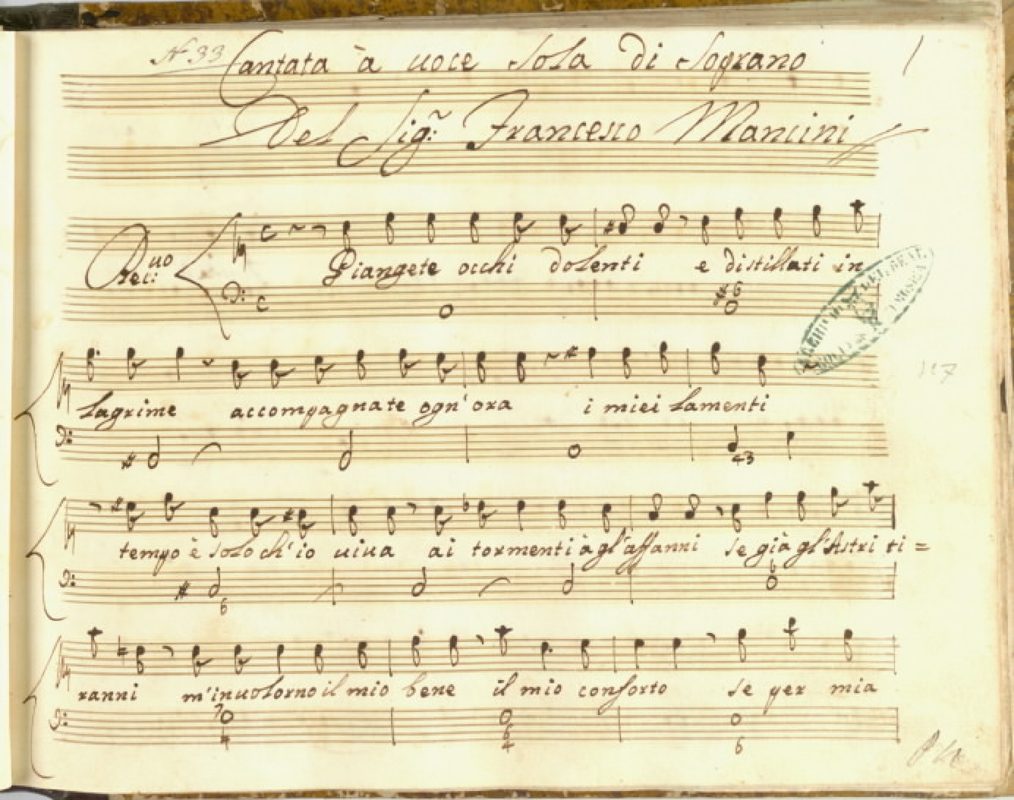 N 33 Cantata à uoce sola di Soprano 1
Del Sig.r Francesco Mancini
Reci:uo
Piangete occhi dolenti e distillati in
#6
117
lagrime accompagnate ogn'ora i miei lamenti
43
tempo è solo ch'io uiua ai tormenti à gl'affanni se già gl'Astri ti=
6
6
ranni m'inuolorno il mio bene il mio conforto se per mia
7
4 6
4 6